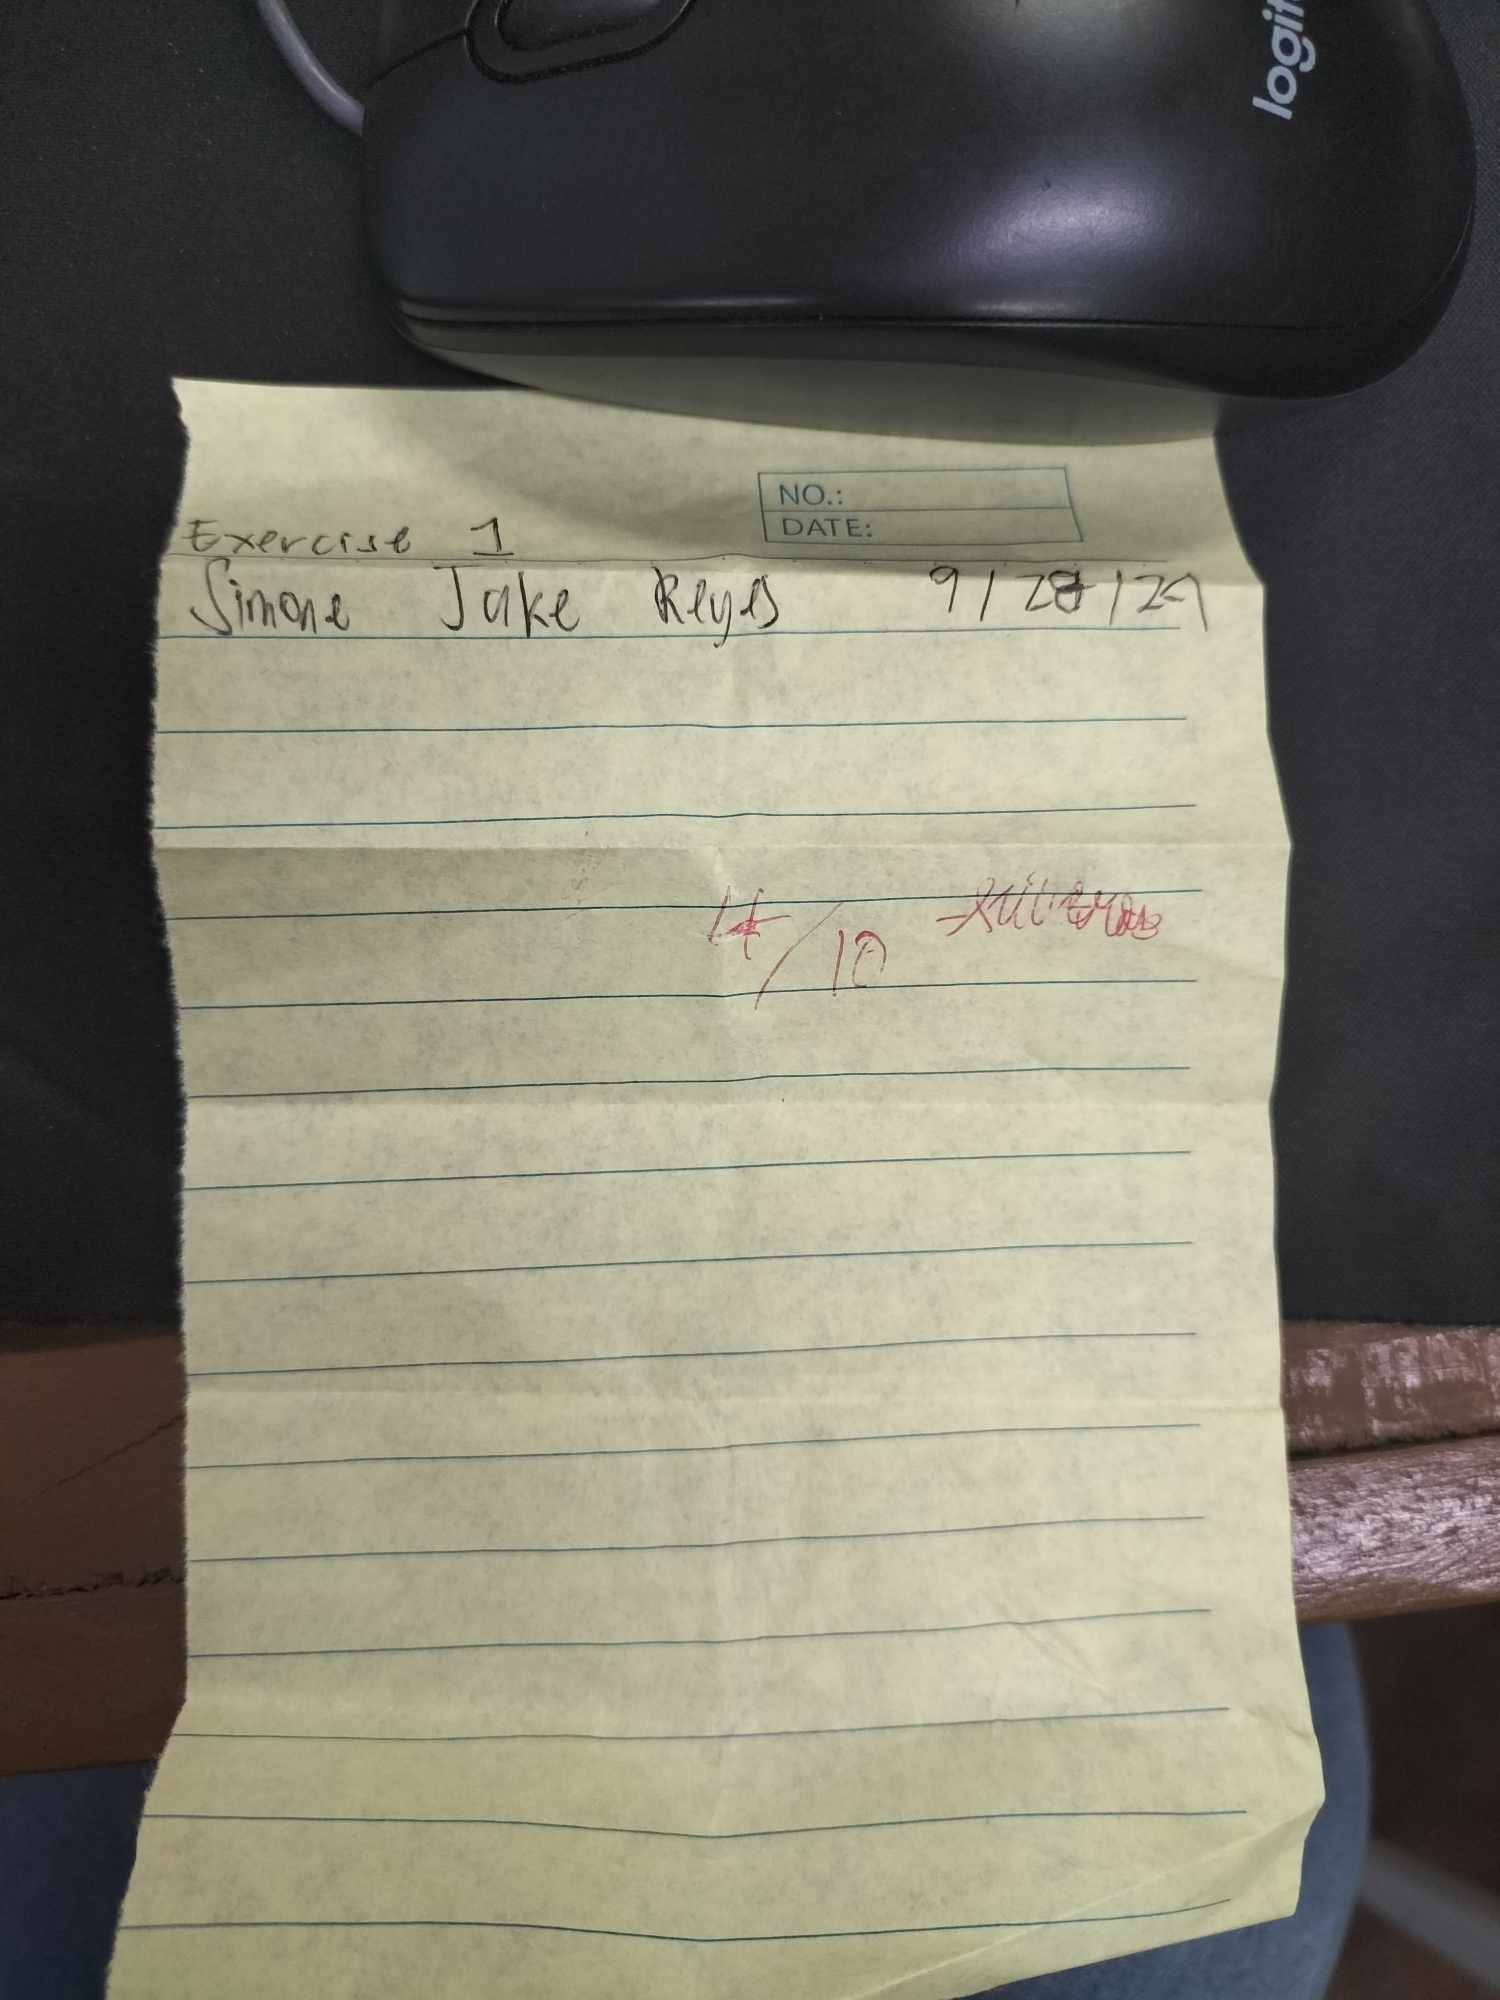 logit
NO.:
DATE:
Exercise 1
Simone Jake Reyes 9/28/24
4/10